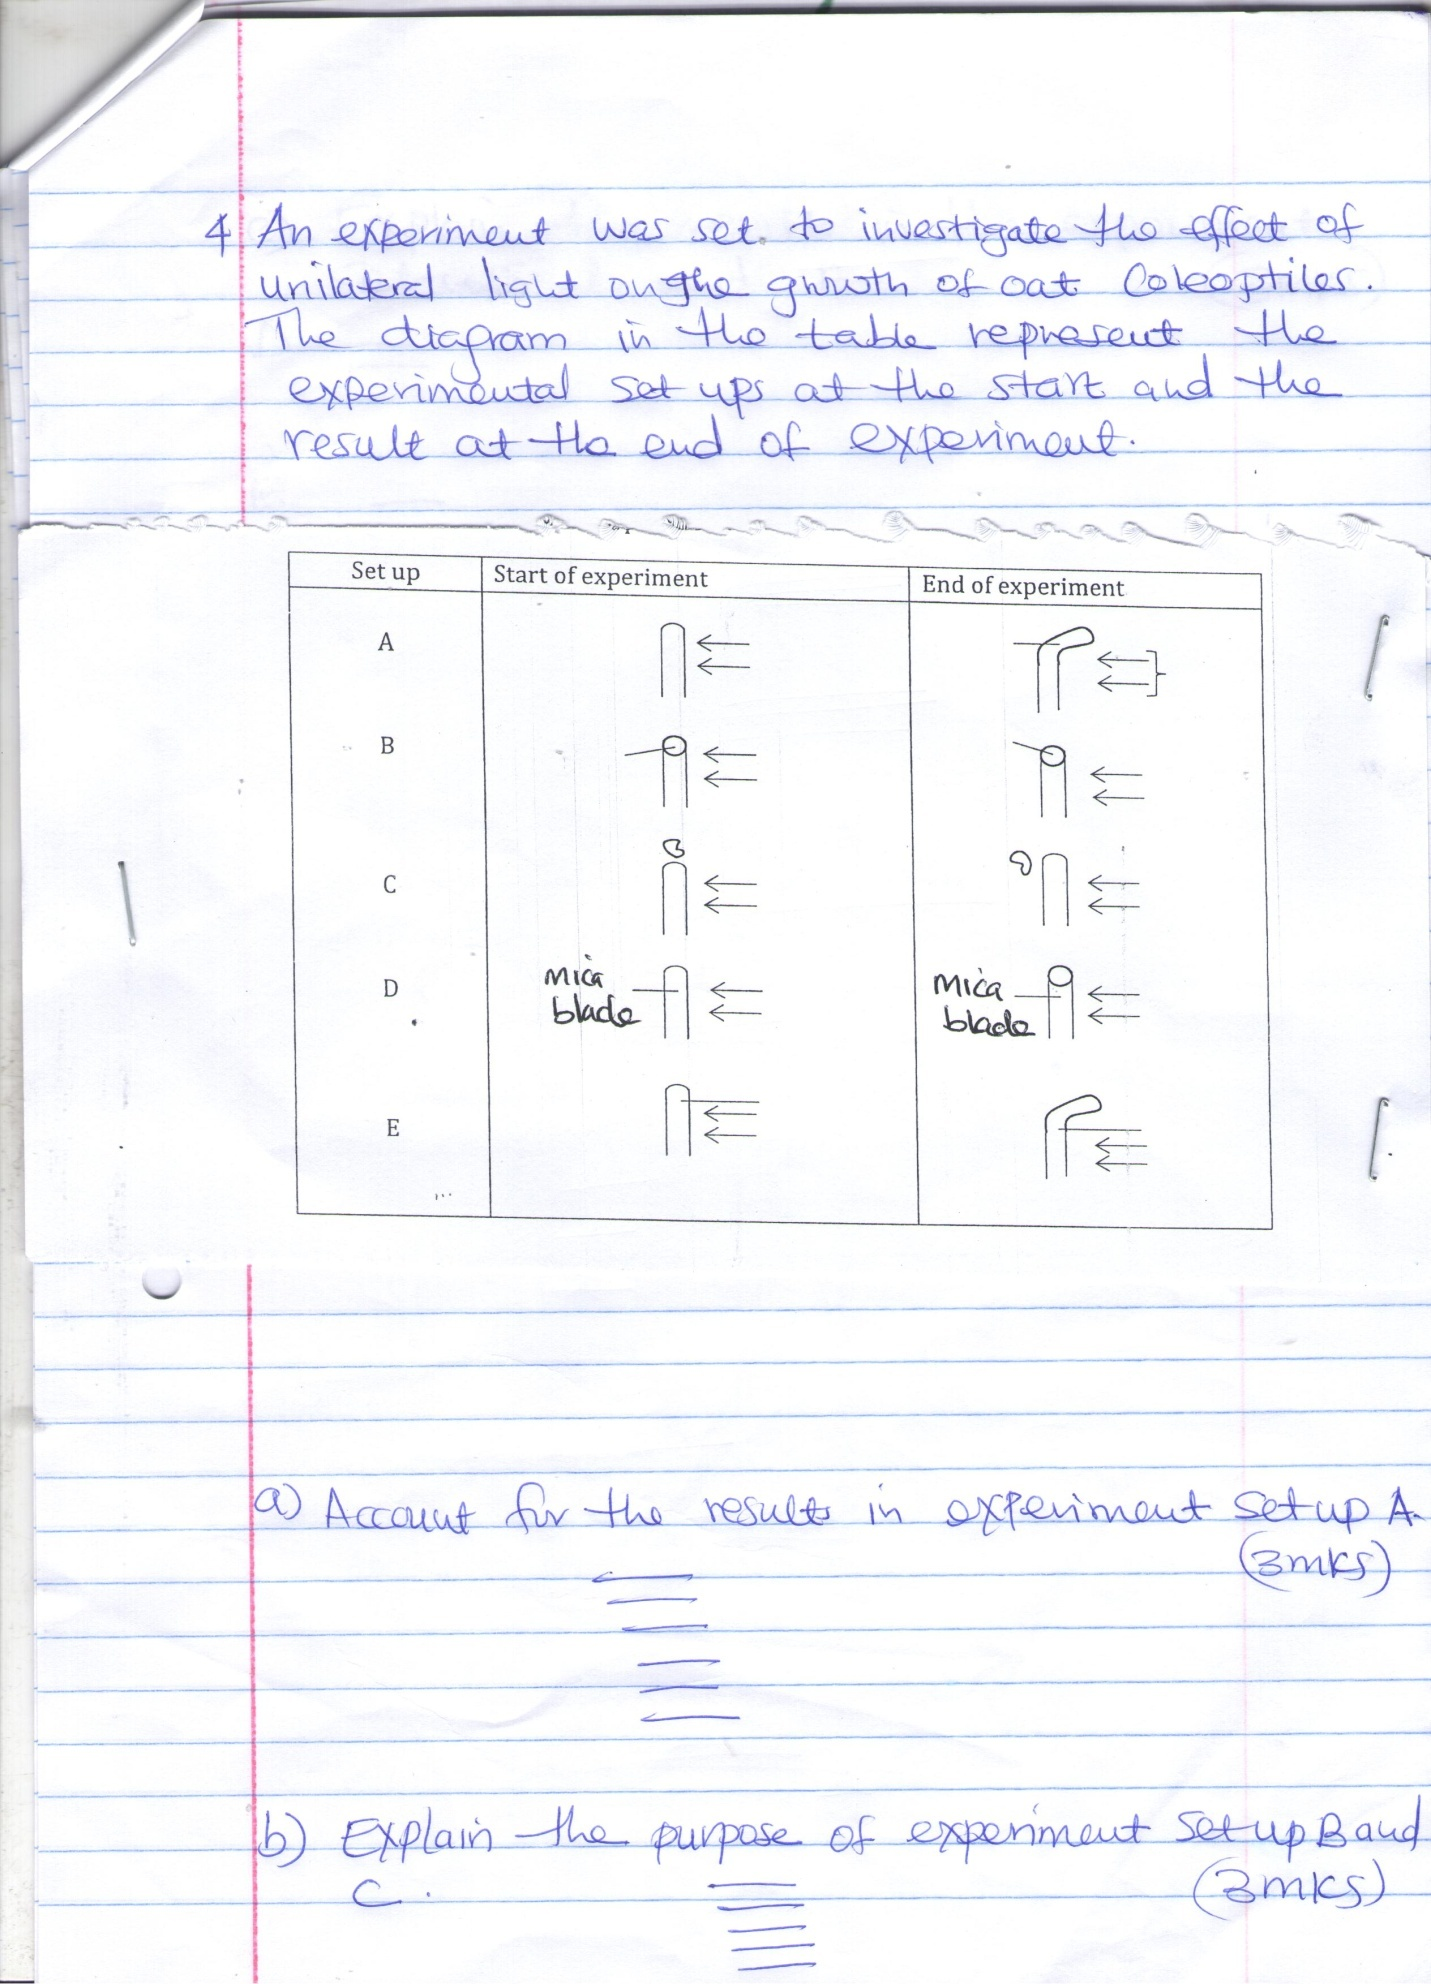 4 An experiment was set to investigate the effect of
unilateral light on the growth of oat Coleoptiles.
The diagram in the table represent the
experimental set ups at the start and the
result at the end of experiment.
Set up Start of experiment End of experiment
A
B
C
mica mica
D
blade blade
E
a) Account for the results in experiment setup A.
(3mks)
b) Explain the purpose of experiment setup B and
C. (3mks)